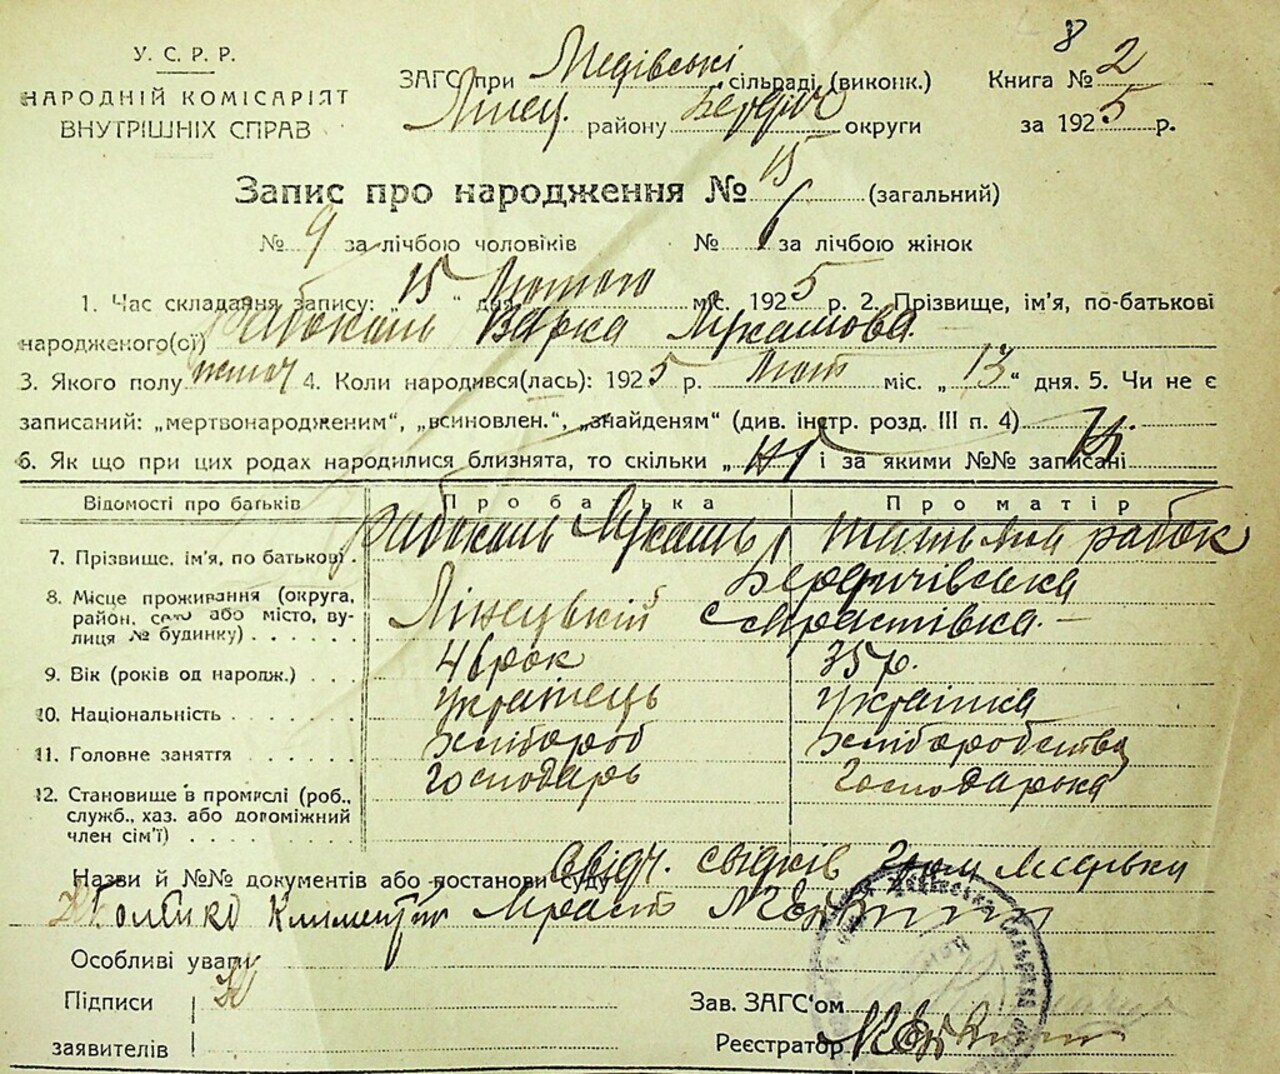 У. С. Р. Р.
НАРОДНІЙ КОМІСАРІЯТ
ВНУТРІШНІХ СПРАВ
8
ЗАГС при Медівські сільраді (виконк.)
Книга № 2
Лінец. району Бердич округи
за 1925 р.
Запис про народження № 15 (загальний)
№ 9 за лічбою чоловіків № 6 за лічбою жінок
1. Час складання запису: „15“ дня Лютого міс. 1925 р. 2. Прізвище, ім'я, по-батькові
народженого(ої) Рабоконь Варка Лукашова
3. Якого полу жіноч 4. Коли народився(лась): 1925 р. Лют міс. „13“ дня. 5. Чи не є
записаний: „мертвонародженим“, „всиновлен.“, „знайденям“ (див. інстр. розд. III п. 4) Ні
6. Як що при цих родах народилися близнята, то скільки „ні“ і за якими №№ записані
Відомості про батьків Про батька Про матір
7. Прізвище, ім'я, по батькові Рабоконь Лукаш рабок
8. Місце проживання (округа, Бердичівська
район, село або місто, ву- Лінецький с
лиця № будинку)
9. Вік (років од народж.) 46 рок 35 р.
10. Національність Українець Українка
11. Головне заняття хлібороб хліборобства
12. Становище в промислі (роб., господарь Господарька
служб., хаз. або допоміжний
член сім'ї)
Назви й №№ документів або постанови суду Свідч. свідків
Климентій
Особливі уваги
Підписи
заявителів
Зав. ЗАГС'ом
Реєстратор